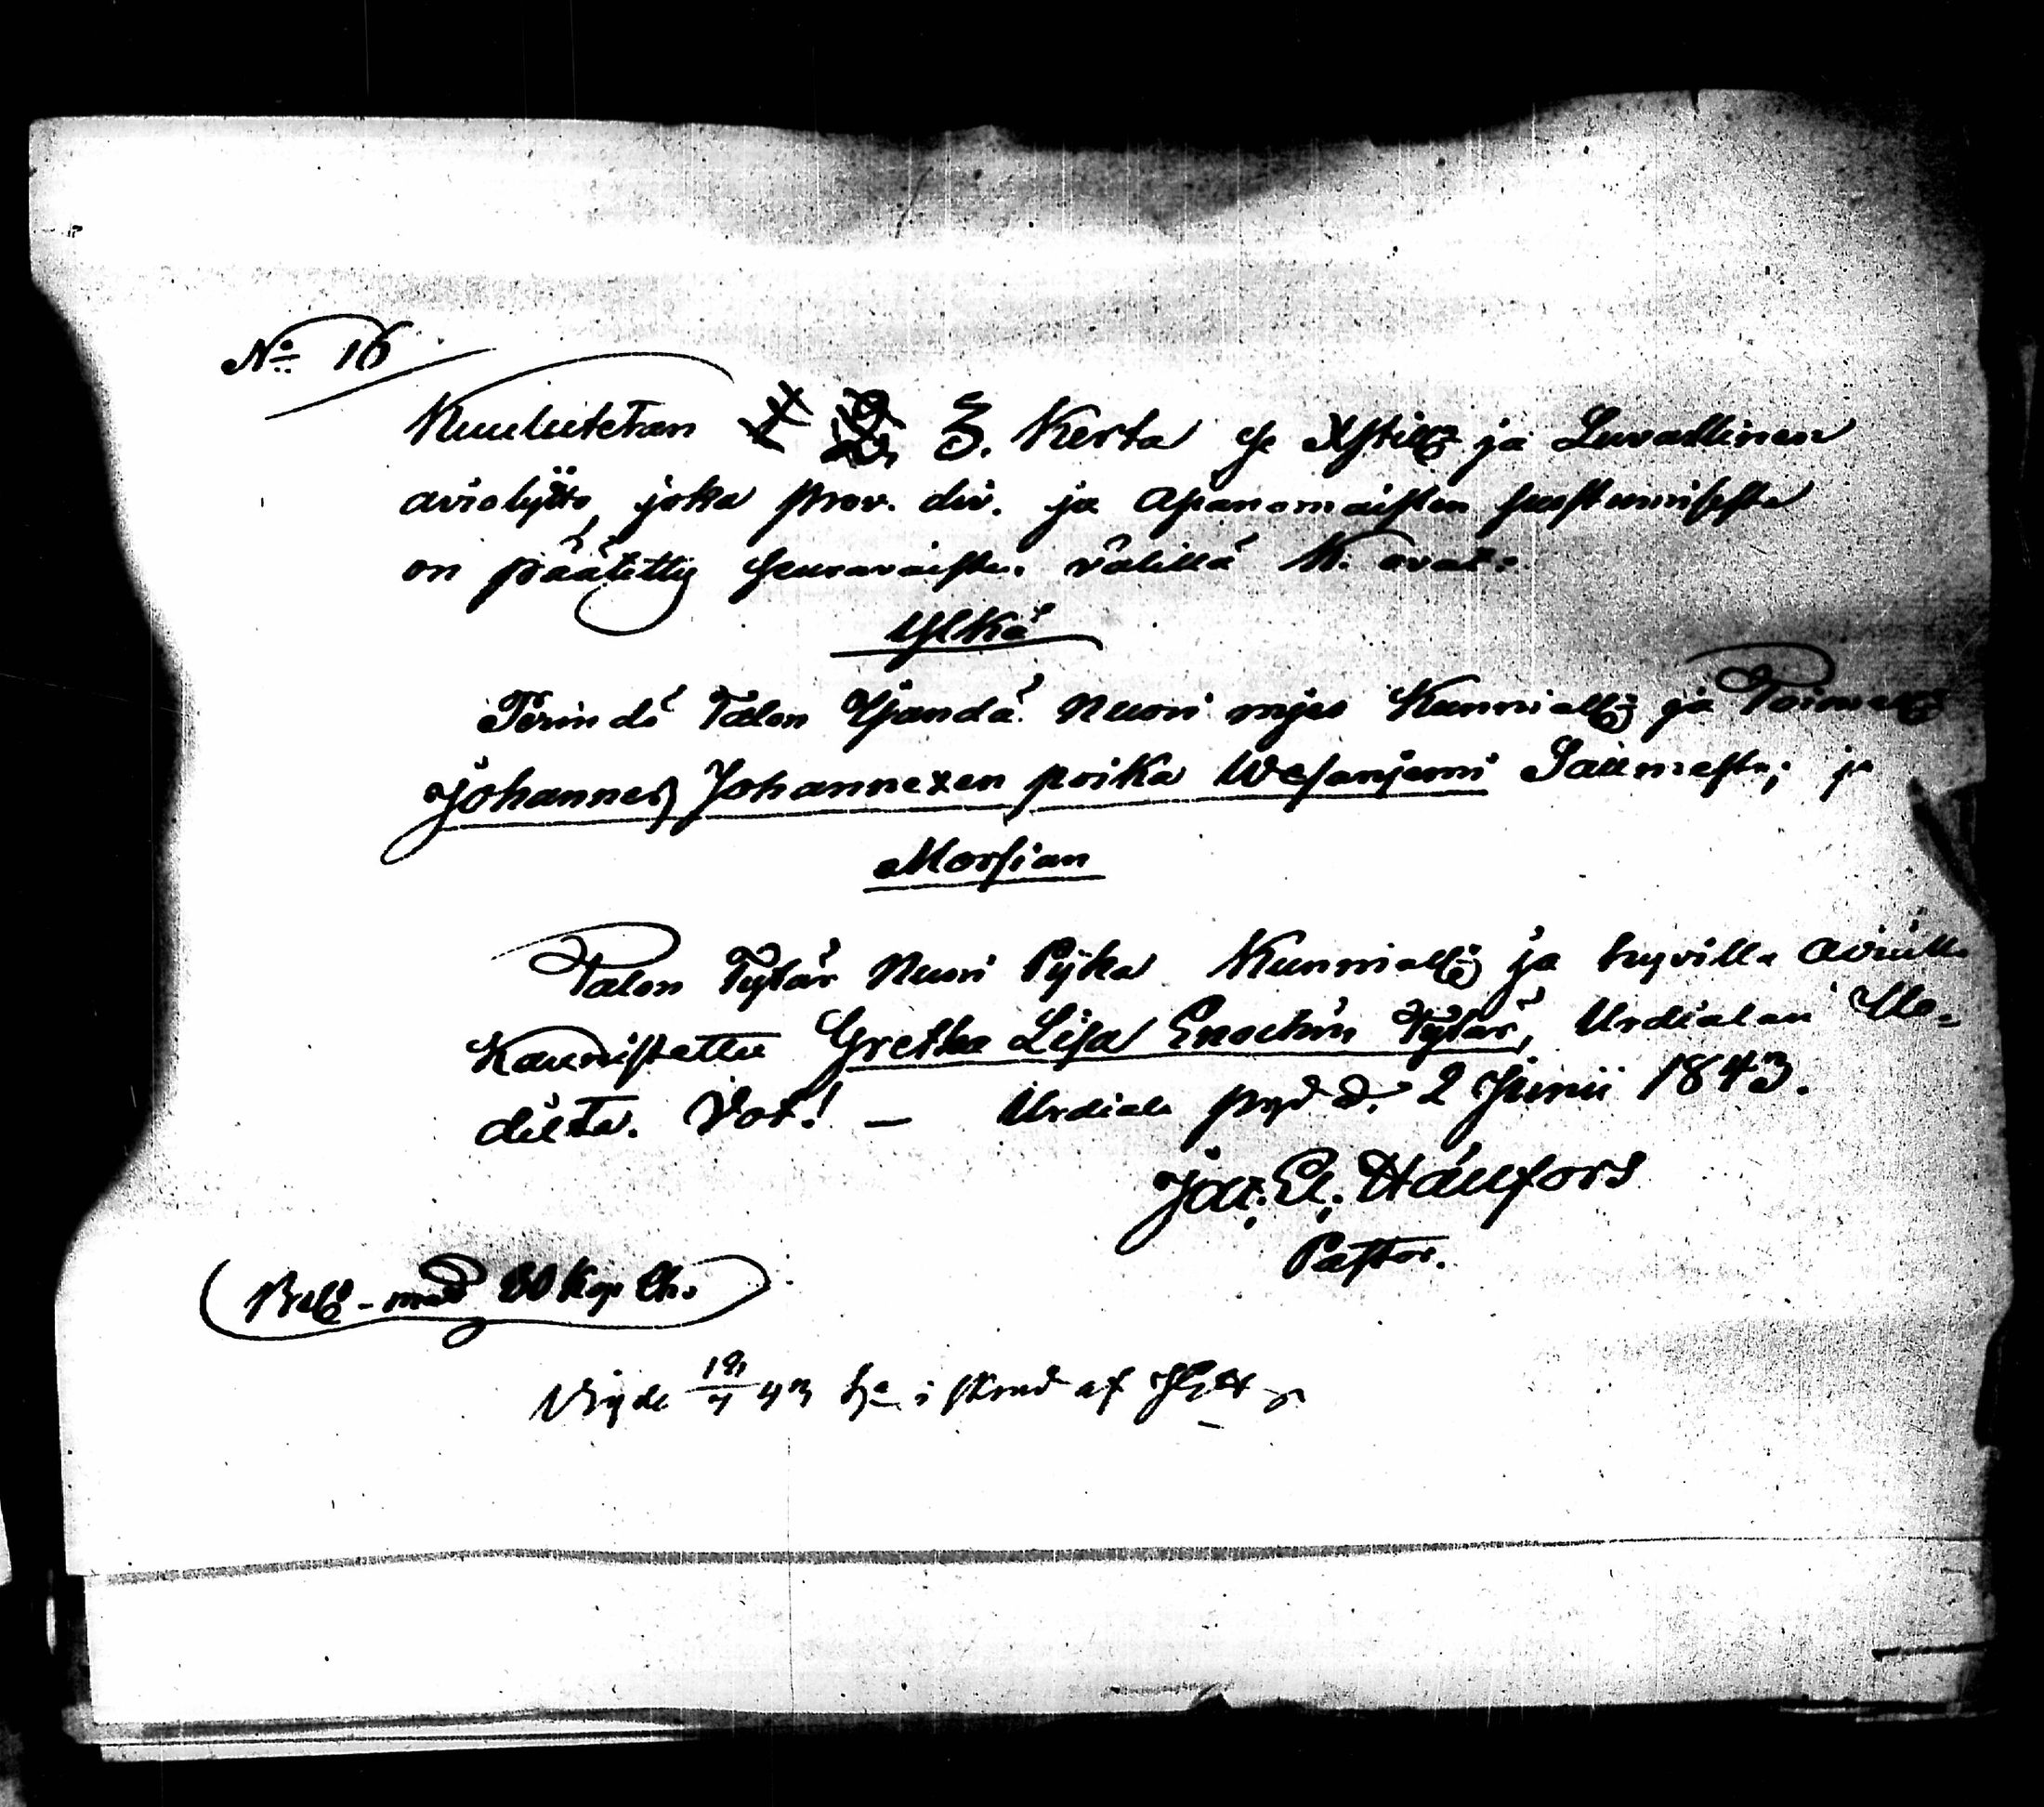 No 16
Kuulutetan 1 2. 3. Kerta se Xstillz ja Luvallinen
avioliitto, joka prov. div. ja Asianomaisten suostumisesta
on päätetty seuravaisten välillä k. ovat:
Ylkä
Perindö Talon Isandä Nuori mjes Kunniall: ja Toimell:
Johannes Johannexen poika Wesanjemi Saumesta; ja
Morsian
Talon Tytär Nuori Pijka Kunniall: ja hyvillä avuilla
Kaunistettu Gretha Lisa Enochin Tytär, Urdialan
dilta. Vot! — Urdiala d. 2 Junii 1843.
Jac. El. Hällfors
Pastor.
med 30 Kop
Vigde 43 i af